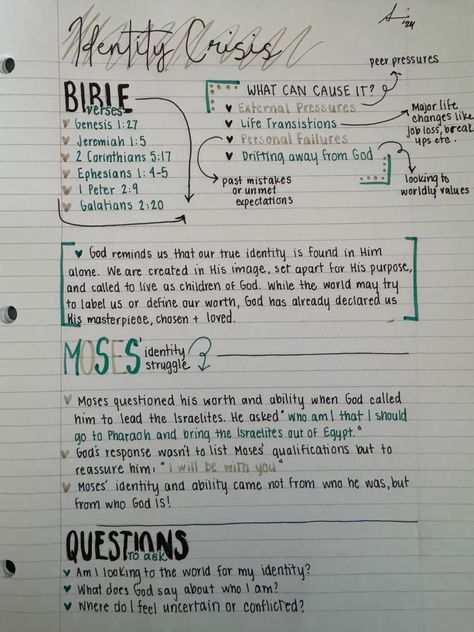 Identity Crisis
'24
BIBLE
verses
Genesis 1:27
Jeremiah 1:5
2 Corinthians 5:17
Ephesians 1:4-5
1 Peter 2:9
Galatians 2:20
WHAT CAN CAUSE IT?
External Pressures
Life Transistions
Personal Failures
Drifting away from God
peer pressures
Major life
changes like
job loss, break
ups etc.
past mistakes
or unmet
expectations
looking to
worldly values
God reminds us that our true identity is found in Him
alone. We are created in His image, set apart for His purpose,
and called to live as children of God. While the world may try
to label us or define our worth, God has already declared us
His masterpiece, chosen + loved.
MOSES' identity
struggle
Moses questioned his worth and ability when God called
him to lead the Israelites. He asked "who am I that I should
go to Pharaoh and bring the Israelites out of Egypt."
God's response wasn't to list Moses' qualifications but to
reassure him: "I will be with you"
Moses' identity and ability came not from who he was, but
from who God is!
QUESTIONS
TO ASK
Am I looking to the world for my identity?
What does God say about who I am?
Where do I feel uncertain or conflicted?